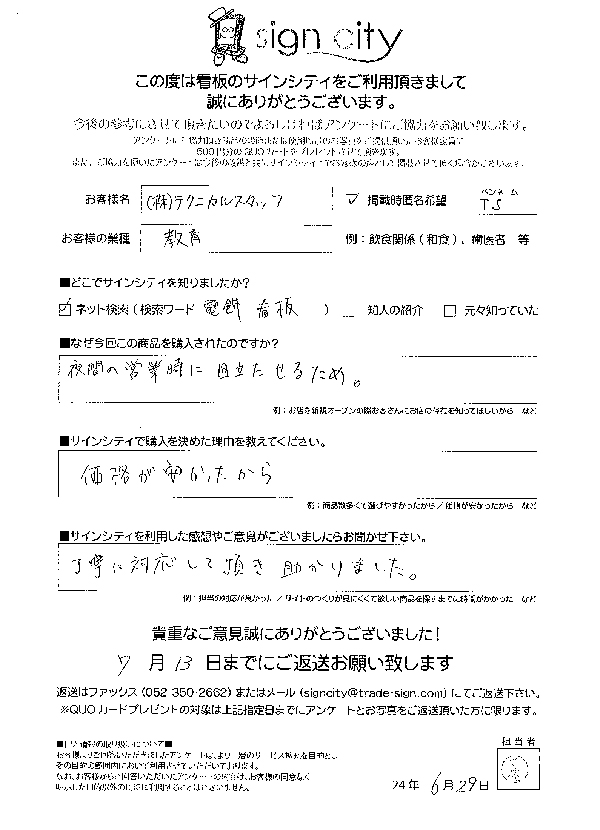 sign city
この度は看板のサインシティをご利用頂きまして
誠にありがとうございます。
今後の参考にさせて頂きたいのでよろしければアンケートにご協力をお願い致します。
お客様名 (株)テクニカルスタッフ 掲載時匿名希望 ペンネーム TS
お客様の業種 教育 例：飲食関係（和食）、歯医者 等
■どこでサインシティを知りましたか？
ネット検索（検索ワード 電飾 看板 ） 知人の紹介 元々知っていた
■なぜ今回この商品を購入されたのですか？
夜間の営業時に目立たせるため。
例：お店を新規オープンの際お客さんにお店の存在を知ってほしいから など
■サインシティで購入を決めた理由を教えてください。
価格が安かったから
例：商品数多くて選びやすかったから／価格が安かったから など
■サインシティを利用した感想やご意見がございましたらお聞かせ下さい。
丁寧に対応して頂き助かりました。
例：担当の対応が良かった／サイトのつくりが見にくくて欲しい商品を探すまでに時間がかかった など
貴重なご意見誠にありがとうございました！
7月13日までにご返送お願い致します
返送はファックス（052-350-2662）またはメール（signcity@trade-sign.com）にてご返送下さい。
※QUOカードプレゼントの対象は上記指定日までにアンケートとお写真をご返送頂いた方に限ります。
担当者
24年 6月29日